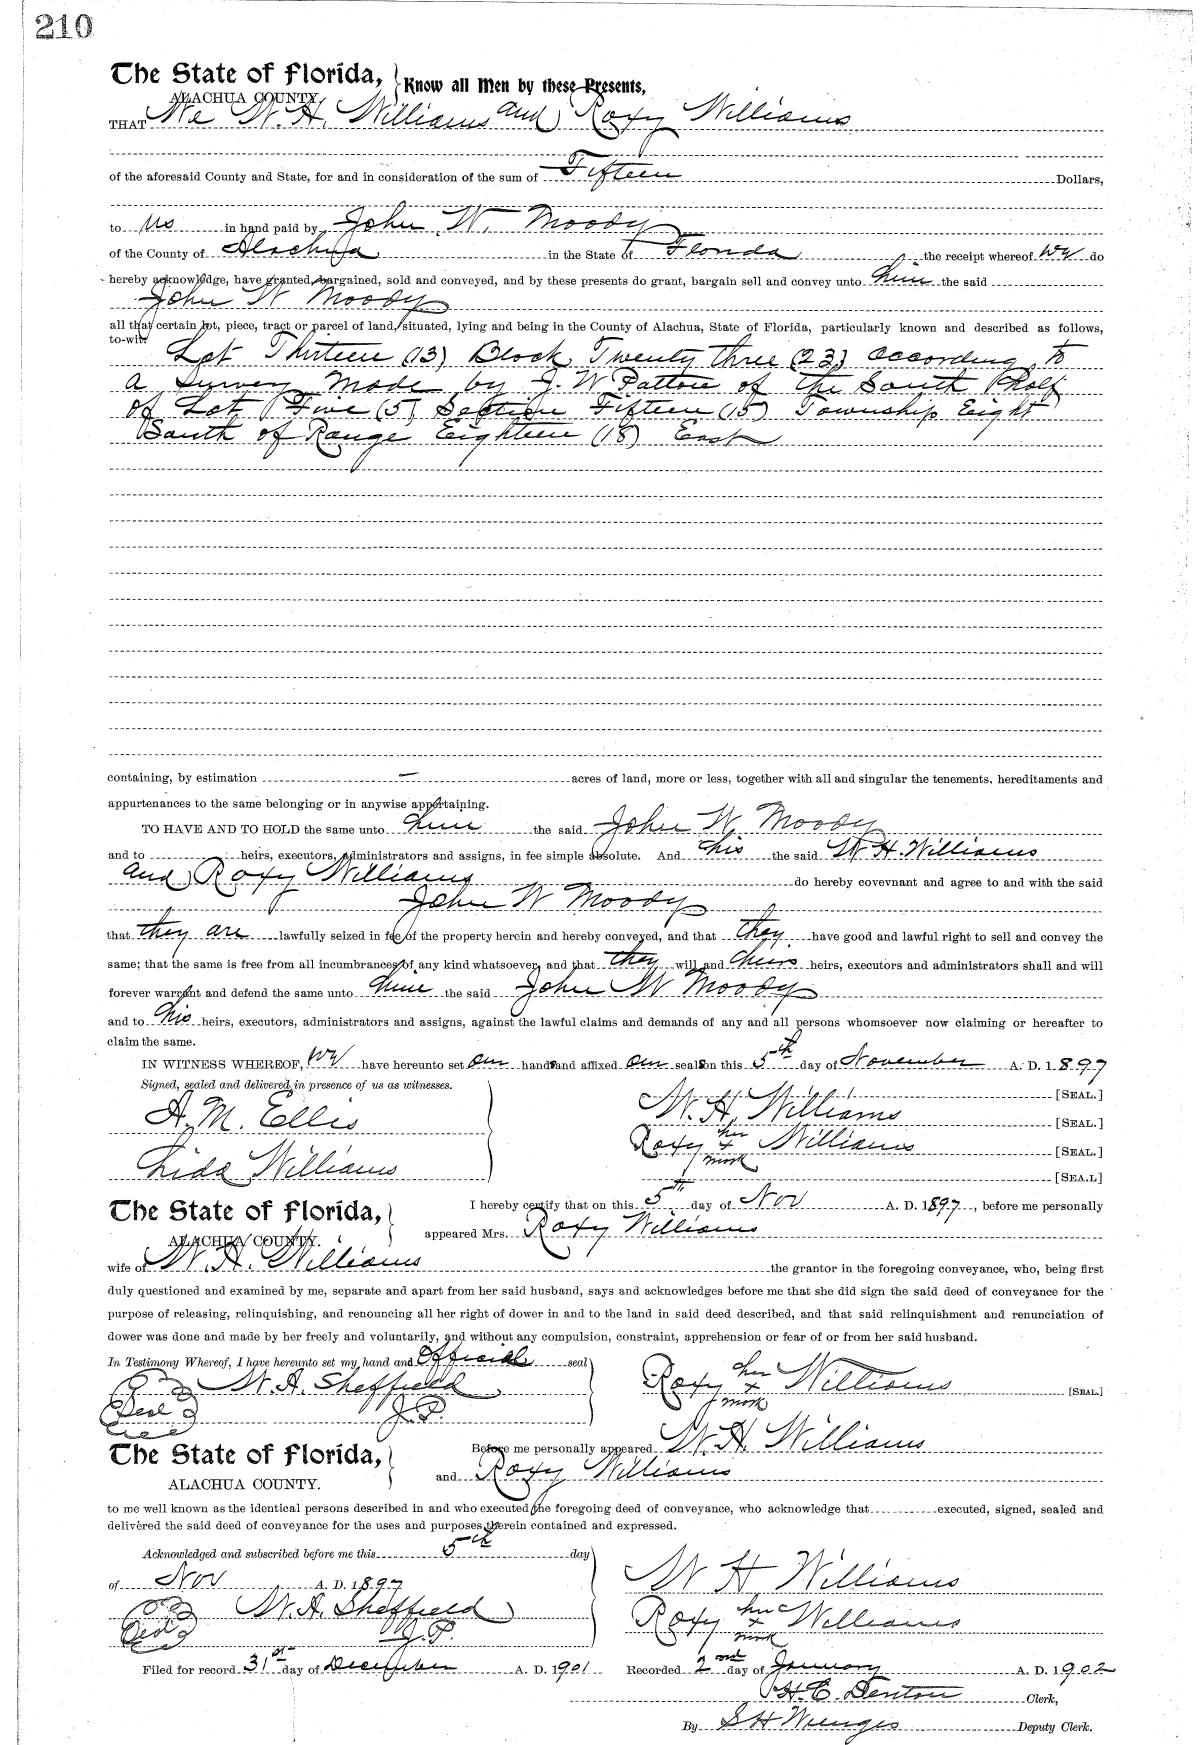 210
The State of Florida, Know all Men by these Presents,
ALACHUA COUNTY.
THAT We W. H. Williams and Roxy Williams
of the aforesaid County and State, for and in consideration of the sum of Fifteen Dollars,
to us in hand paid by John W. Moody
of the County of Alachua in the State of Florida the receipt whereof we do
hereby acknowledge, have granted, bargained, sold and conveyed, and by these presents do grant, bargain sell and convey unto him the said
John W Moody
all that certain lot, piece, tract or parcel of land, situated, lying and being in the County of Alachua, State of Florida, particularly known and described as follows,
to-wit:
Lot Thirteen (13) Block Twenty three (23) according to
a survey made by J. W Patton of the South half
of Lot Five (5) Section Fifteen (15) Township Eight
South of Range Eighteen (18) East
containing, by estimation — acres of land, more or less, together with all and singular the tenements, hereditaments and
appurtenances to the same belonging or in anywise appertaining.
TO HAVE AND TO HOLD the same unto him the said John W. Moody
and to heirs, executors, administrators and assigns, in fee simple absolute. And his the said W H. Williams
and Roxy Williams do hereby covevnant and agree to and with the said
John W Moody
that they are lawfully seized in fee of the property herein and hereby conveyed, and that they have good and lawful right to sell and convey the
same; that the same is free from all incumbrances of any kind whatsoever, and that they will and theirs heirs, executors and administrators shall and will
forever warrant and defend the same unto him the said John W Moody
and to his heirs, executors, administrators and assigns, against the lawful claims and demands of any and all persons whomsoever now claiming or hereafter to
claim the same.
IN WITNESS WHEREOF, we have hereunto set our hands and affixed our seals on this 5th day of November A. D. 1897
Signed, sealed and delivered in presence of us as witnesses. [SEAL.]
A. M. Ellis W. H. Williams [SEAL.]
Roxy her x mark Williams [SEAL.]
Lida Williams [SEAL]
The State of Florida, I hereby certify that on this 5th day of Nov A. D. 1897, before me personally
ALACHUA COUNTY. appeared Mrs. Roxy Williams
wife of W. H. Williams the grantor in the foregoing conveyance, who, being first
duly questioned and examined by me, separate and apart from her said husband, says and acknowledges before me that she did sign the said deed of conveyance for the
purpose of releasing, relinquishing, and renouncing all her right of dower in and to the land in said deed described, and that said relinquishment and renunciation of
dower was done and made by her freely and voluntarily, and without any compulsion, constraint, apprehension or fear of or from her said husband.
In Testimony Whereof, I have hereunto set my hand and Official seal
W. A. Sheffield Roxy her x mark Williams [SEAL.]
Seal J. P.
The State of Florida, Before me personally appeared W. H. Williams
ALACHUA COUNTY. and Roxy Williams
to me well known as the identical persons described in and who executed the foregoing deed of conveyance, who acknowledge that executed, signed, sealed and
delivered the said deed of conveyance for the uses and purposes therein contained and expressed.
Acknowledged and subscribed before me this 5th day
of Nov A. D. 1897 W H Williams
W. A. Sheffield Roxy her x mark Williams
Seal J. P.
Filed for record 31st day of December A. D. 1901 Recorded 2nd day of January A. D. 1902
H. C. Denton Clerk,
By S H Wienges Deputy Clerk.